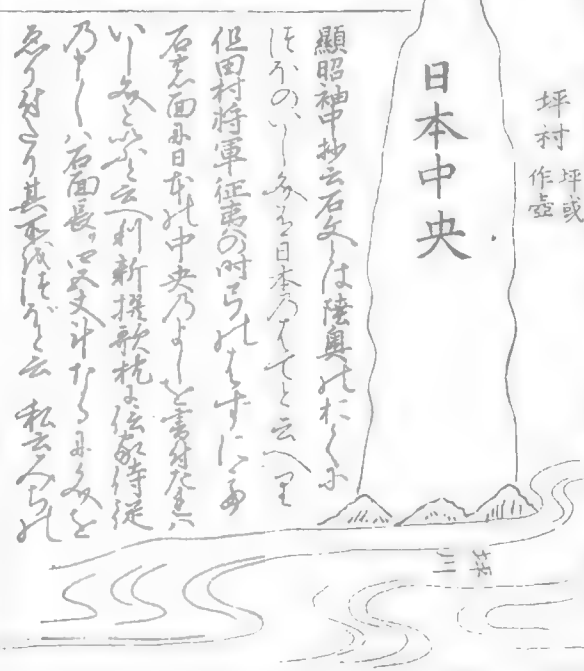 坪村
坪或
作壺
日本中央
坪川
顯昭袖中抄云石文とは陸奥のおくに
つぼのいしぶみ有日本のはてと云へり
但田村将軍征夷の時弓のはずにて
石の面に日本の中央のよしを書付たれハ
いしぶみといふと云へり新撰歌枕に侍従
の申しハ石面長サ四五丈計なるに文を
ゑり付たり其所をつぼと云 私云みちの